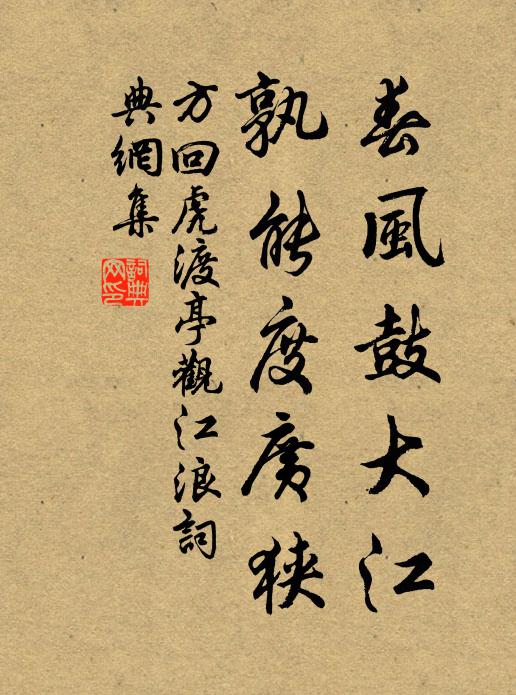 春風鼓大江
孰能度廣狹
方回虎渡亭觀江浪詞
典網集
詞典
网印